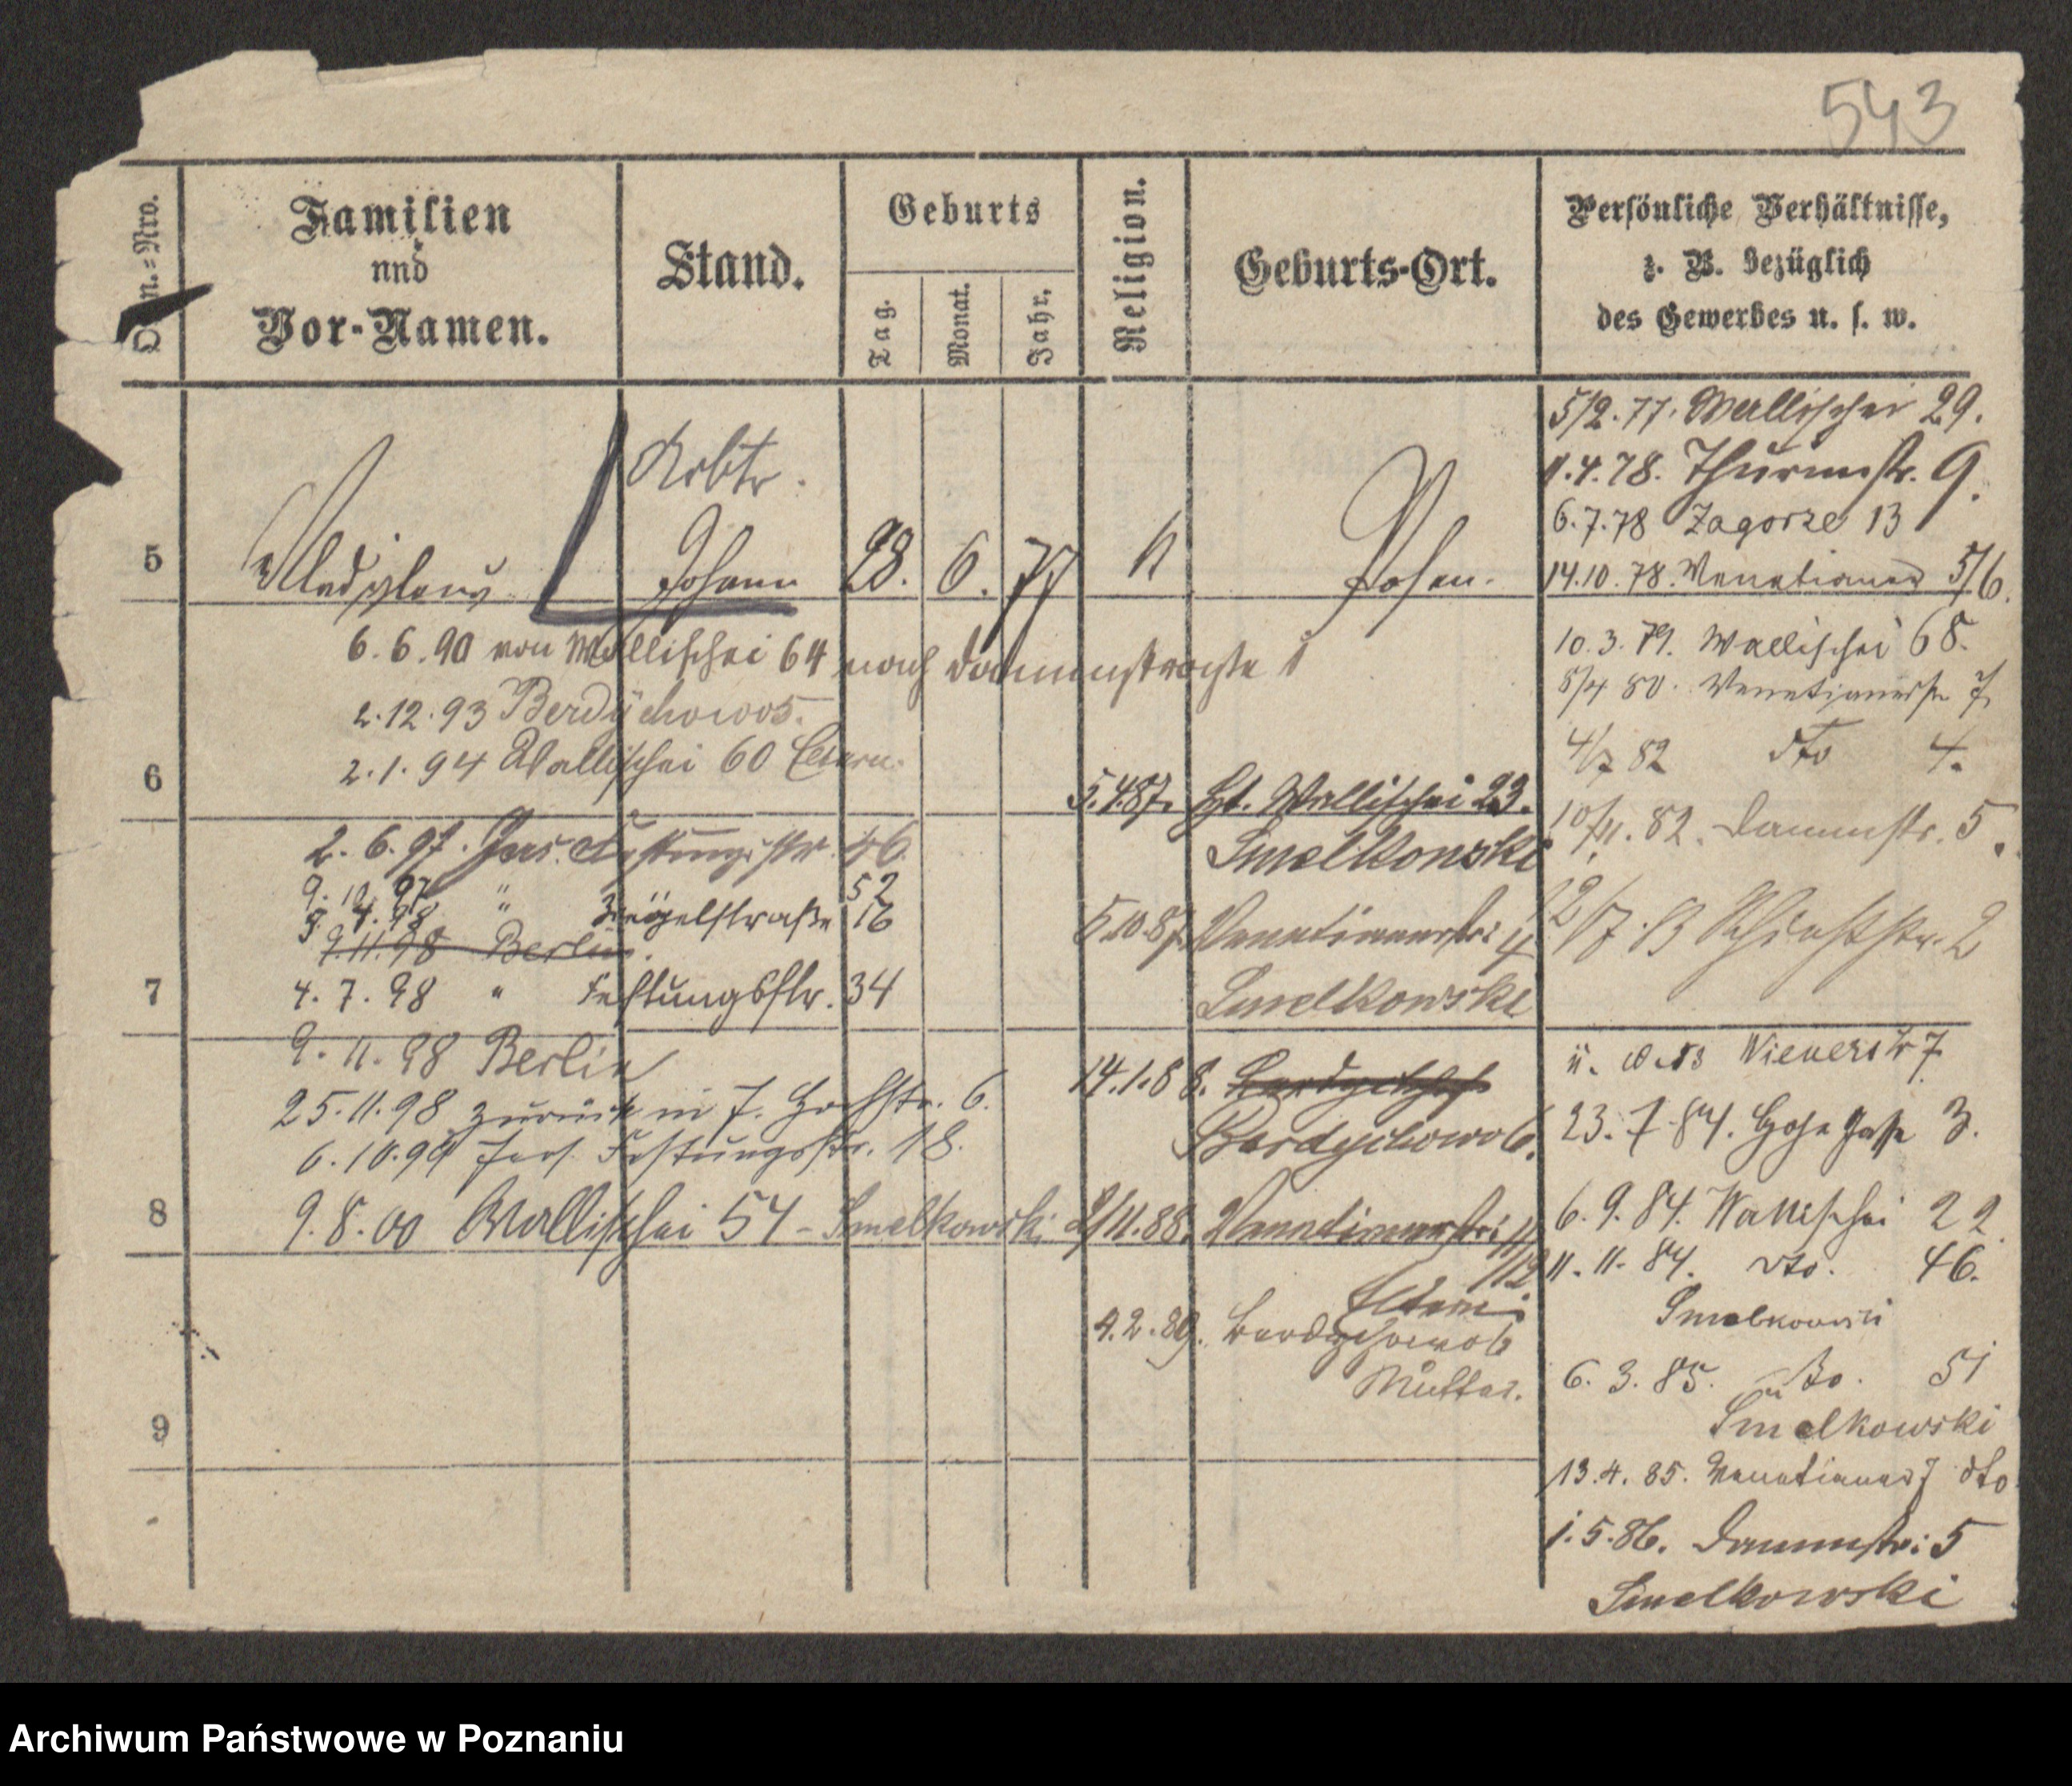 543
Familien
und
Vor-Namen.
Stand.
Geburts
Tag.
Monat.
Jahr.
Religion.
Geburts-Ort.
Persönliche Verhältnisse,
z. B. bezüglich
des Gewerbes u. s. w.
5
Arbtr.
Johann
28. 6. 77
k
Posen.
5/2. 77. Wallischei 29.
1.4.78. Thurmstr. 9.
6.7.78 Zagorze 13
14.10.78. Venetianer 5/6.
6
6.6.90 von Wallischei 64 nach Dammstraße 1
2.12.93 Berdychowo 5.
2.1.94 Wallischei 60 Eltern.
5.4.87. Wallischei 23.
Smelkowski
10.3.79. Wallischei 68.
8/4 80. Venetianerstr 7
4/7 82 dto 4.
10/11.82. Dammstr. 5.
7
2.6.97. Jers. Festungsstr. 46
9.10.97 " 52
9.4.98 Ziegelstraße 16
9.11.98 Berlin.
4.7.98 " Festungsstr. 34
5.10.87. Venetianerstr. 4
Smelkowski
8
9.11.98 Berlin
25.11.98 zurück in J. Hochstr. 6.
6.10.99 Jers. Festungsstr. 18.
9.8.00 Wallischei 54 - Smelkowski
14.1.88.
Berdychowo 6.
2/11.88. Venetianerstr. 11/12
Eltern
4.2.89. Berdychowo 6
Mutter.
Wienerstr 7
23.7.84. Hohe Gasse 3.
6.9.84. Wallischei 22
11.11.84. dto. 46.
Smelkowski
6.3.85. dto. 51
Smelkowski
13.4.85. Venetianer 7 dto
1.5.86. Dammstr. 5
Smelkowski
9
Archiwum Państwowe w Poznaniu